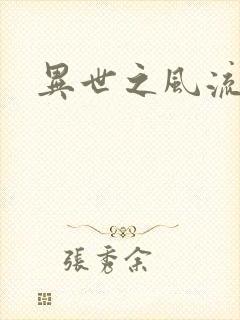 異世之風流
張秀余